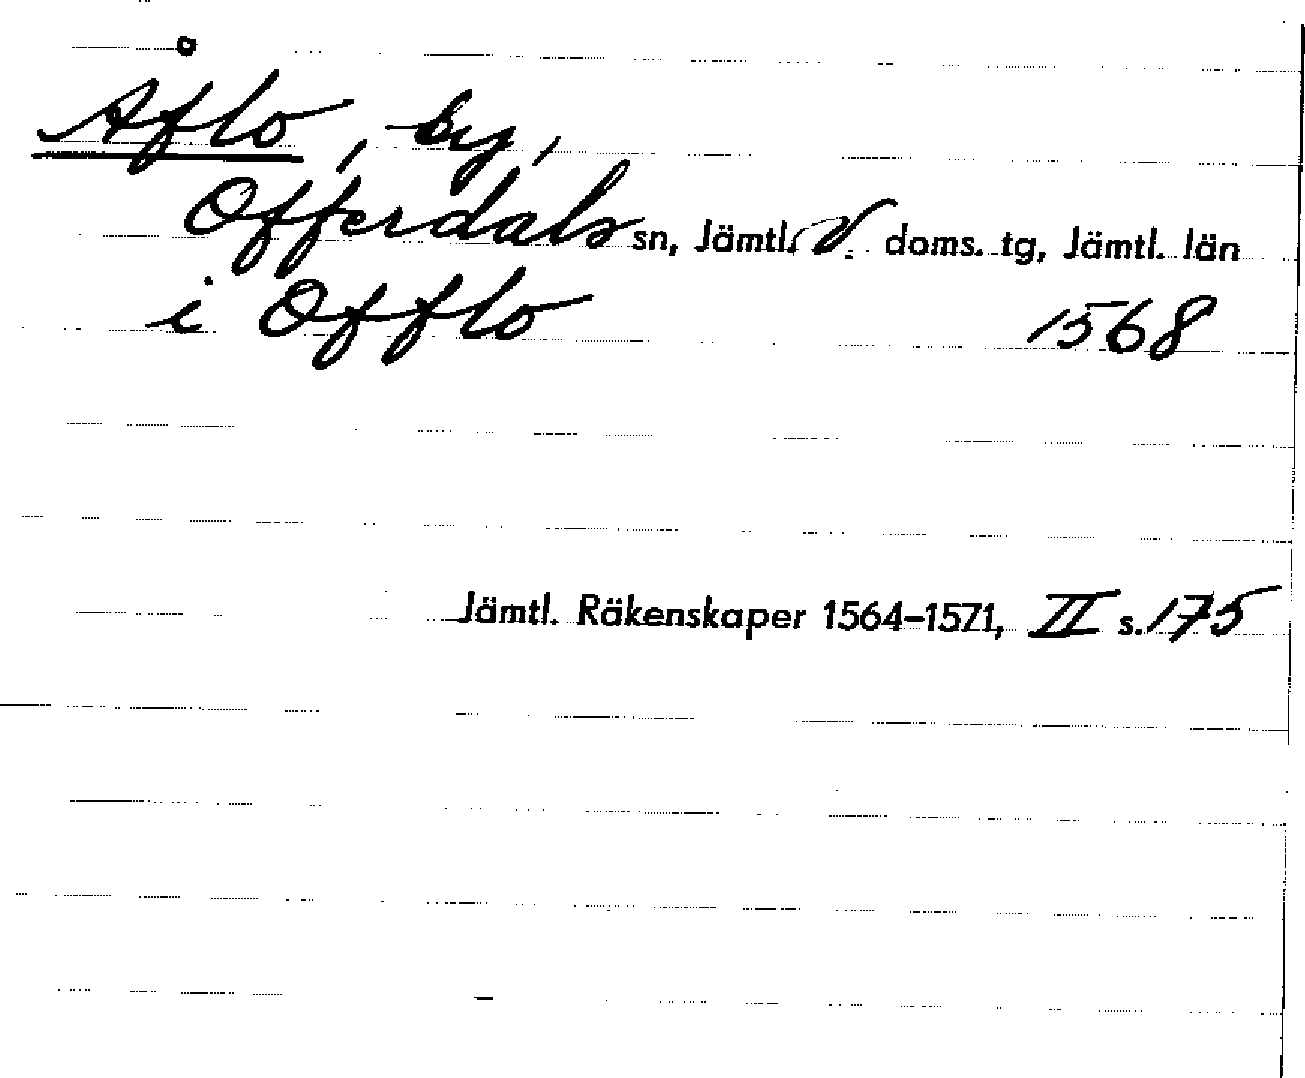 Åflo, by,
Offerdals sn, Jämtl. V. doms. tg, Jämtl. län
i Offlo 1568
Jämtl. Räkenskaper 1564–1571, II s. 175